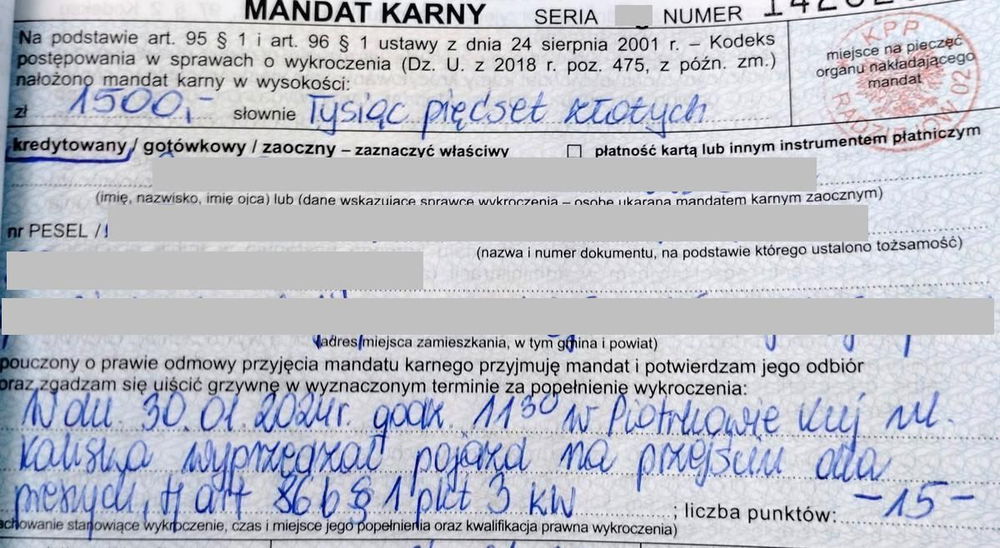 MANDAT KARNY SERIA NUMER
Na podstawie art. 95 § 1 i art. 96 § 1 ustawy z dnia 24 sierpnia 2001 r. – Kodeks
postępowania w sprawach o wykroczenia (Dz. U. z 2018 r. poz. 475, z późn. zm.)
nałożono mandat karny w wysokości:
miejsce na pieczęć
organu nakładającego
mandat
KPP
zł 1500,- słownie Tysiąc pięćset złotych
kredytowany / gotówkowy / zaoczny – zaznaczyć właściwy
płatność kartą lub innym instrumentem płatniczym
(imię, nazwisko, imię ojca) lub (dane wskazujące sprawcę wykroczenia – osobę ukaraną mandatem karnym zaocznym)
nr PESEL /
(nazwa i numer dokumentu, na podstawie którego ustalono tożsamość)
(adres miejsca zamieszkania, w tym gmina i powiat)
pouczony o prawie odmowy przyjęcia mandatu karnego przyjmuję mandat i potwierdzam jego odbiór
oraz zgadzam się uiścić grzywnę w wyznaczonym terminie za popełnienie wykroczenia:
W dn. 30.01.2024r godz. 11 30 w Piotrkowie Kuj ul.
Kaliska wyprzedzać pojazd na przejściu dla
pieszych, tj art 86b § 1 pkt 3 kw ; liczba punktów: -15-
achowanie stanowiące wykroczenie, czas i miejsce jego popełnienia oraz kwalifikacja prawna wykroczenia)